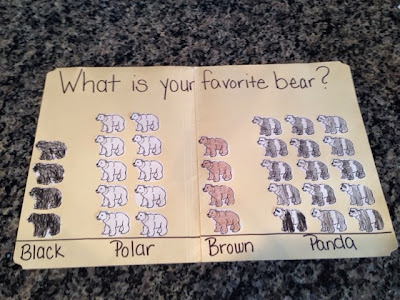 What is your favorite bear?
Black Polar Brown Panda